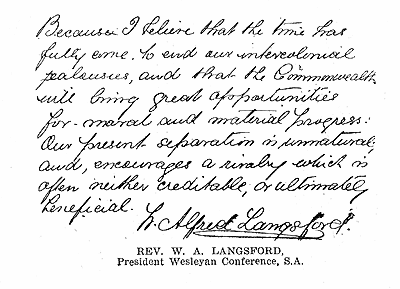 Because I believe that the time has
fully come to end our intercolonial
jealousies, and that the Commonwealth
will bring great opportunities
for moral and material progress.
Our present separation is unnatural,
and, encourages a rivalry which is
often neither creditable, or ultimately
beneficial. W. Alfred Langsford.
REV. W. A. LANGSFORD,
President Wesleyan Conference, S.A.